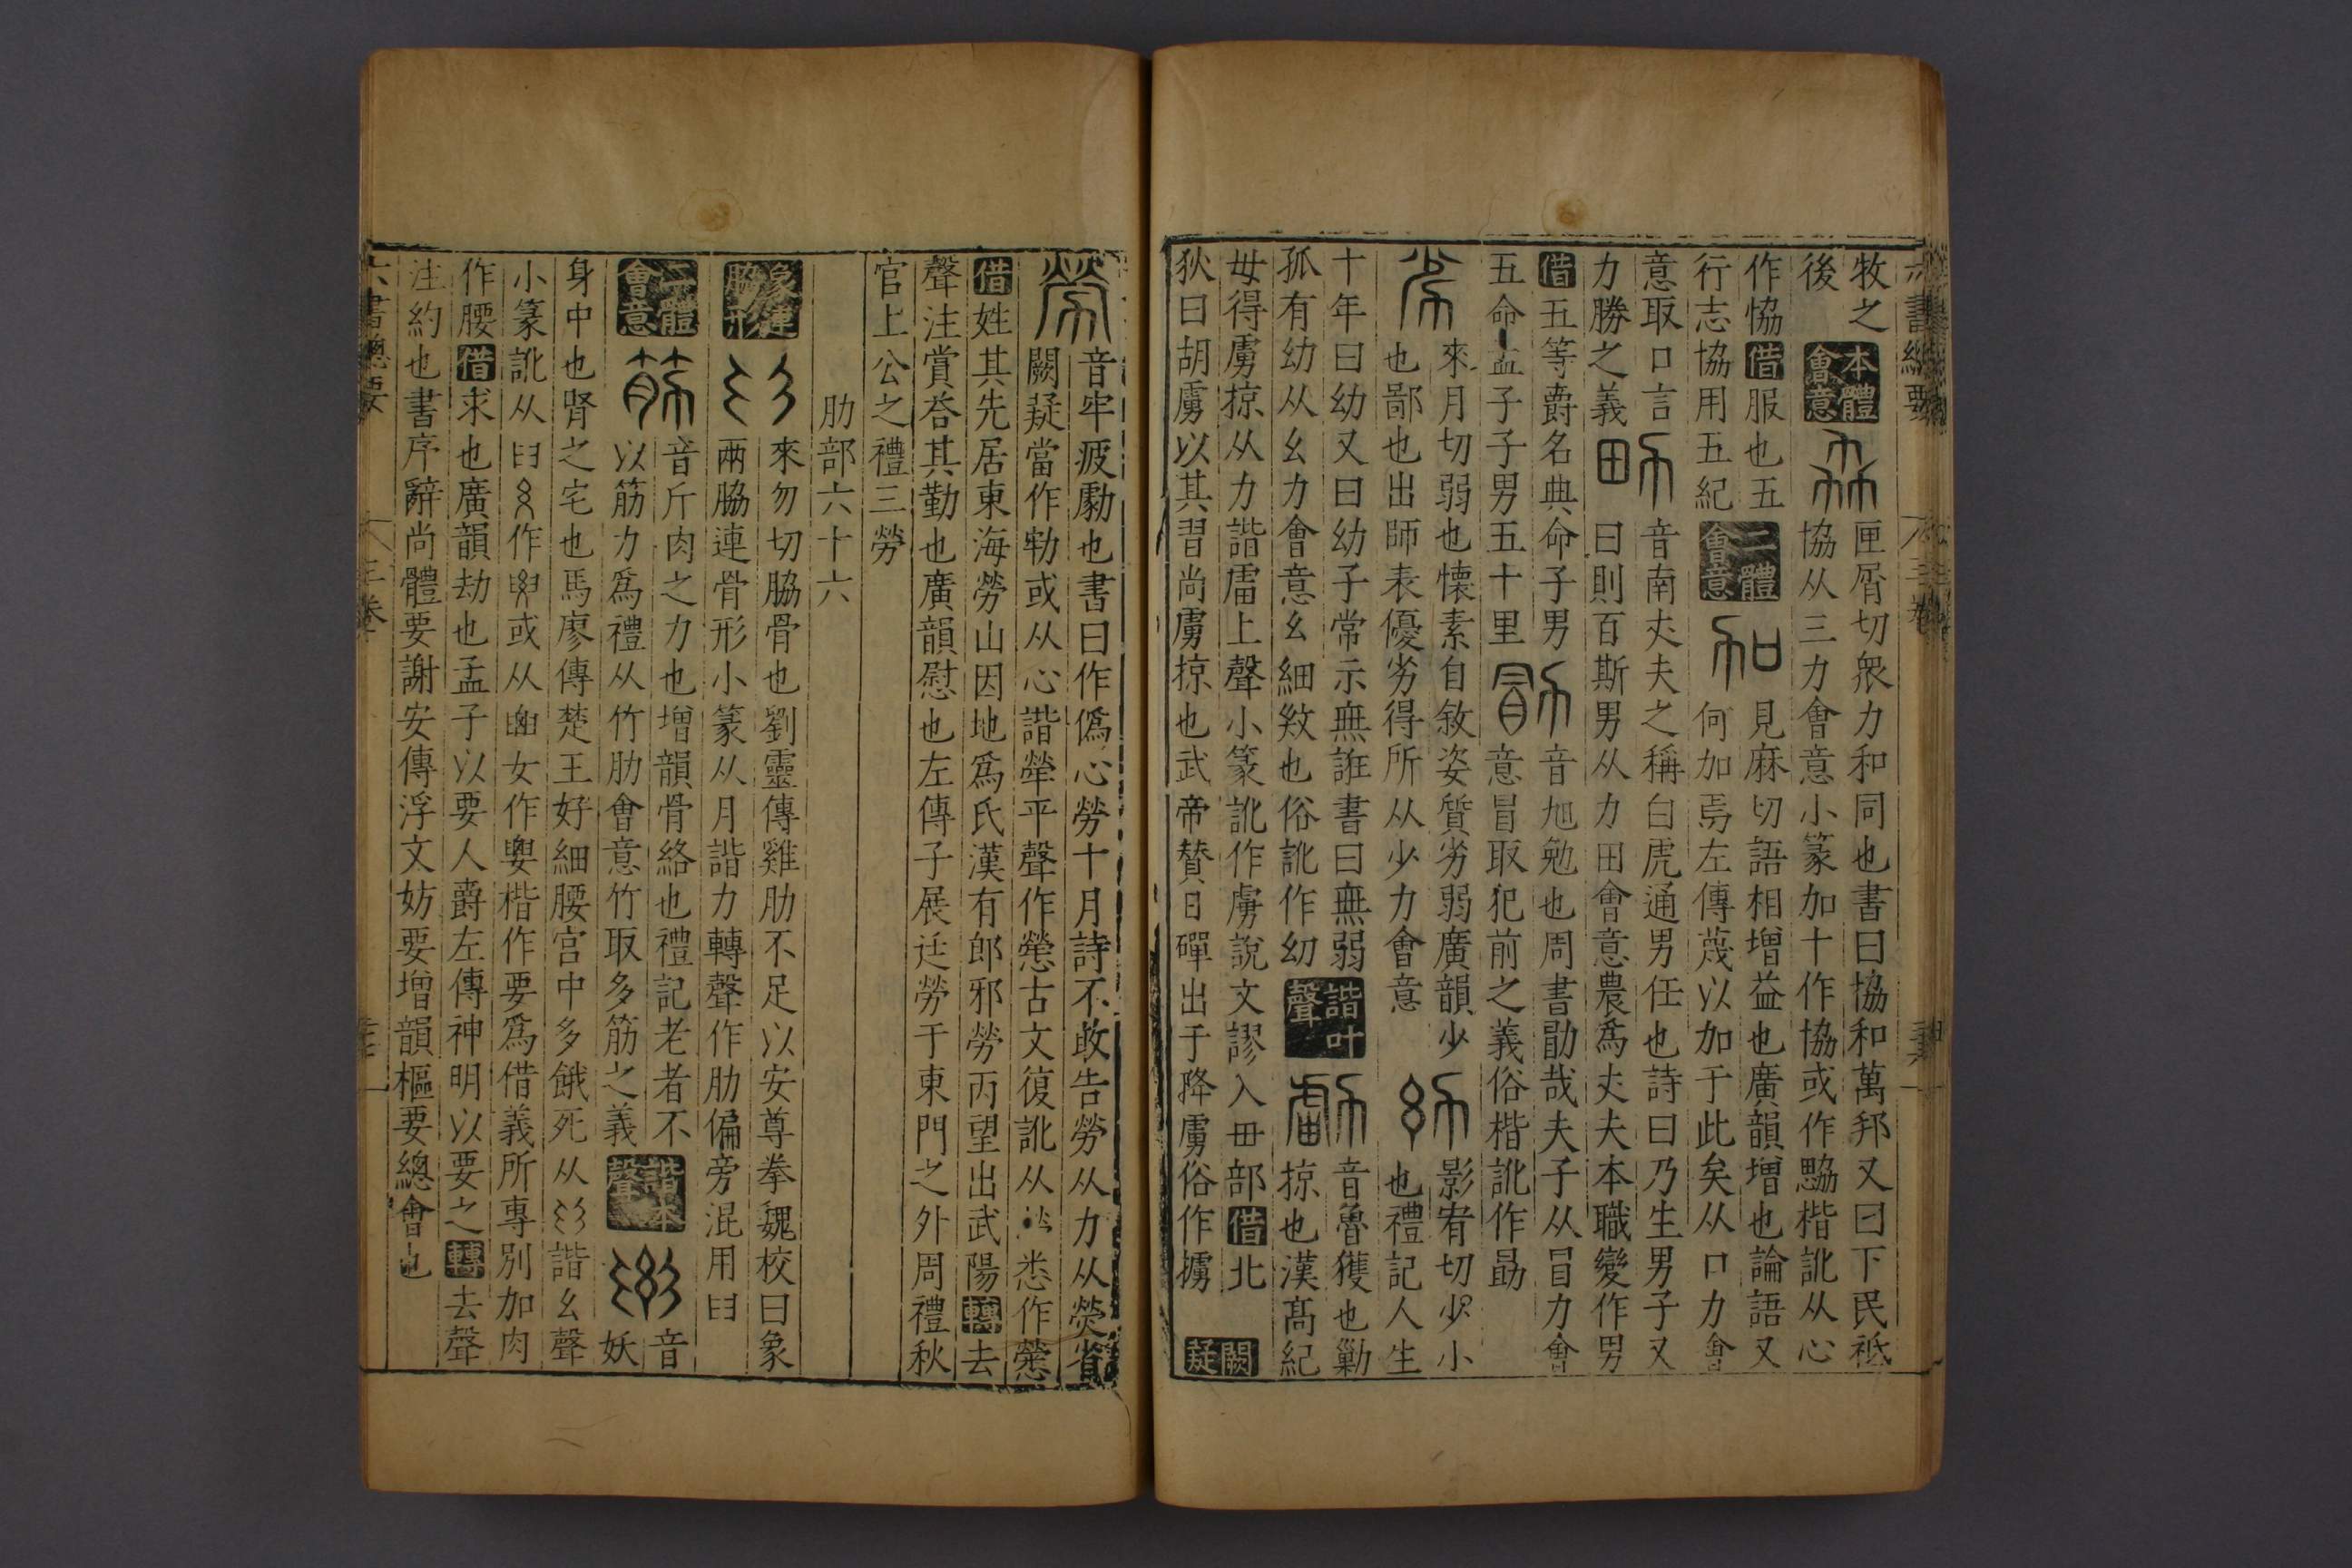 六書總要
三卷
牧之
後
本體會意
匣屑切衆力和同也書曰協和萬邦又曰下民祗
協从三力會意小篆加十作協或作勰楷訛从心
作恊借服也五
行志協用五紀
二體會意
見麻切語相增益也廣韻增也論語又
何加焉左傳蔑以加于此矣从口力會
意取口言
力勝之義
音南丈夫之稱白虎通男任也詩曰乃生男子又
曰則百斯男从力田會意農爲丈夫本職變作男
借五等爵名典命子男
五命孟子子男五十里
音旭勉也周書勖哉夫子从冒力會
意冒取犯前之義俗楷訛作勗
來月切弱也懷素自敘姿質劣弱廣韻少
也鄙也出師表優劣得所从少力會意
影宥切少小
也禮記人生
十年曰幼又曰幼子常示無誑書曰無弱
孤有幼从幺力會意幺細㪅也俗訛作㓜
諧叶聲
音魯獲也勦
掠也漢髙紀
毋得虜掠从力諧畱上聲小篆訛作虜說文謬入毌部借北
狄曰胡虜以其習尚虜掠也武帝賛曰磾出于降虜俗作擄
闕疑
音牢疲勮也書曰作僞心勞十月詩不敢告勞从力从熒省
闕疑當作勑或从心諧犖平聲作憥古文復訛从悉作
借姓其先居東海勞山因地爲氏漢有郎邪勞丙望出武陽轉去
聲注賞荅其勤也廣韻慰也左傳子展廷勞于東門之外周禮秋
官上公之禮三勞
肋部六十六
象連脇形
來勿切脇骨也劉靈傳雞肋不足以安尊拳魏校曰象
兩脇連骨形小篆从月諧力轉聲作肋偏旁混用⺼
二體會意
音斤肉之力也增韻骨絡也禮記老者不
以筋力爲禮从竹肋會意竹取多筋之義
諧本聲
音
妖
身中也腎之宅也馬廖傳楚王好細腰宫中多餓死从諧幺聲
小篆訛从作或从女作楷作要爲借義所專別加肉
作腰借求也廣韻劫也孟子以要人爵左傳神明以要之轉去聲
注約也書序辭尚體要謝安傳浮文妨要增韻樞要總會也
六書總要
三卷